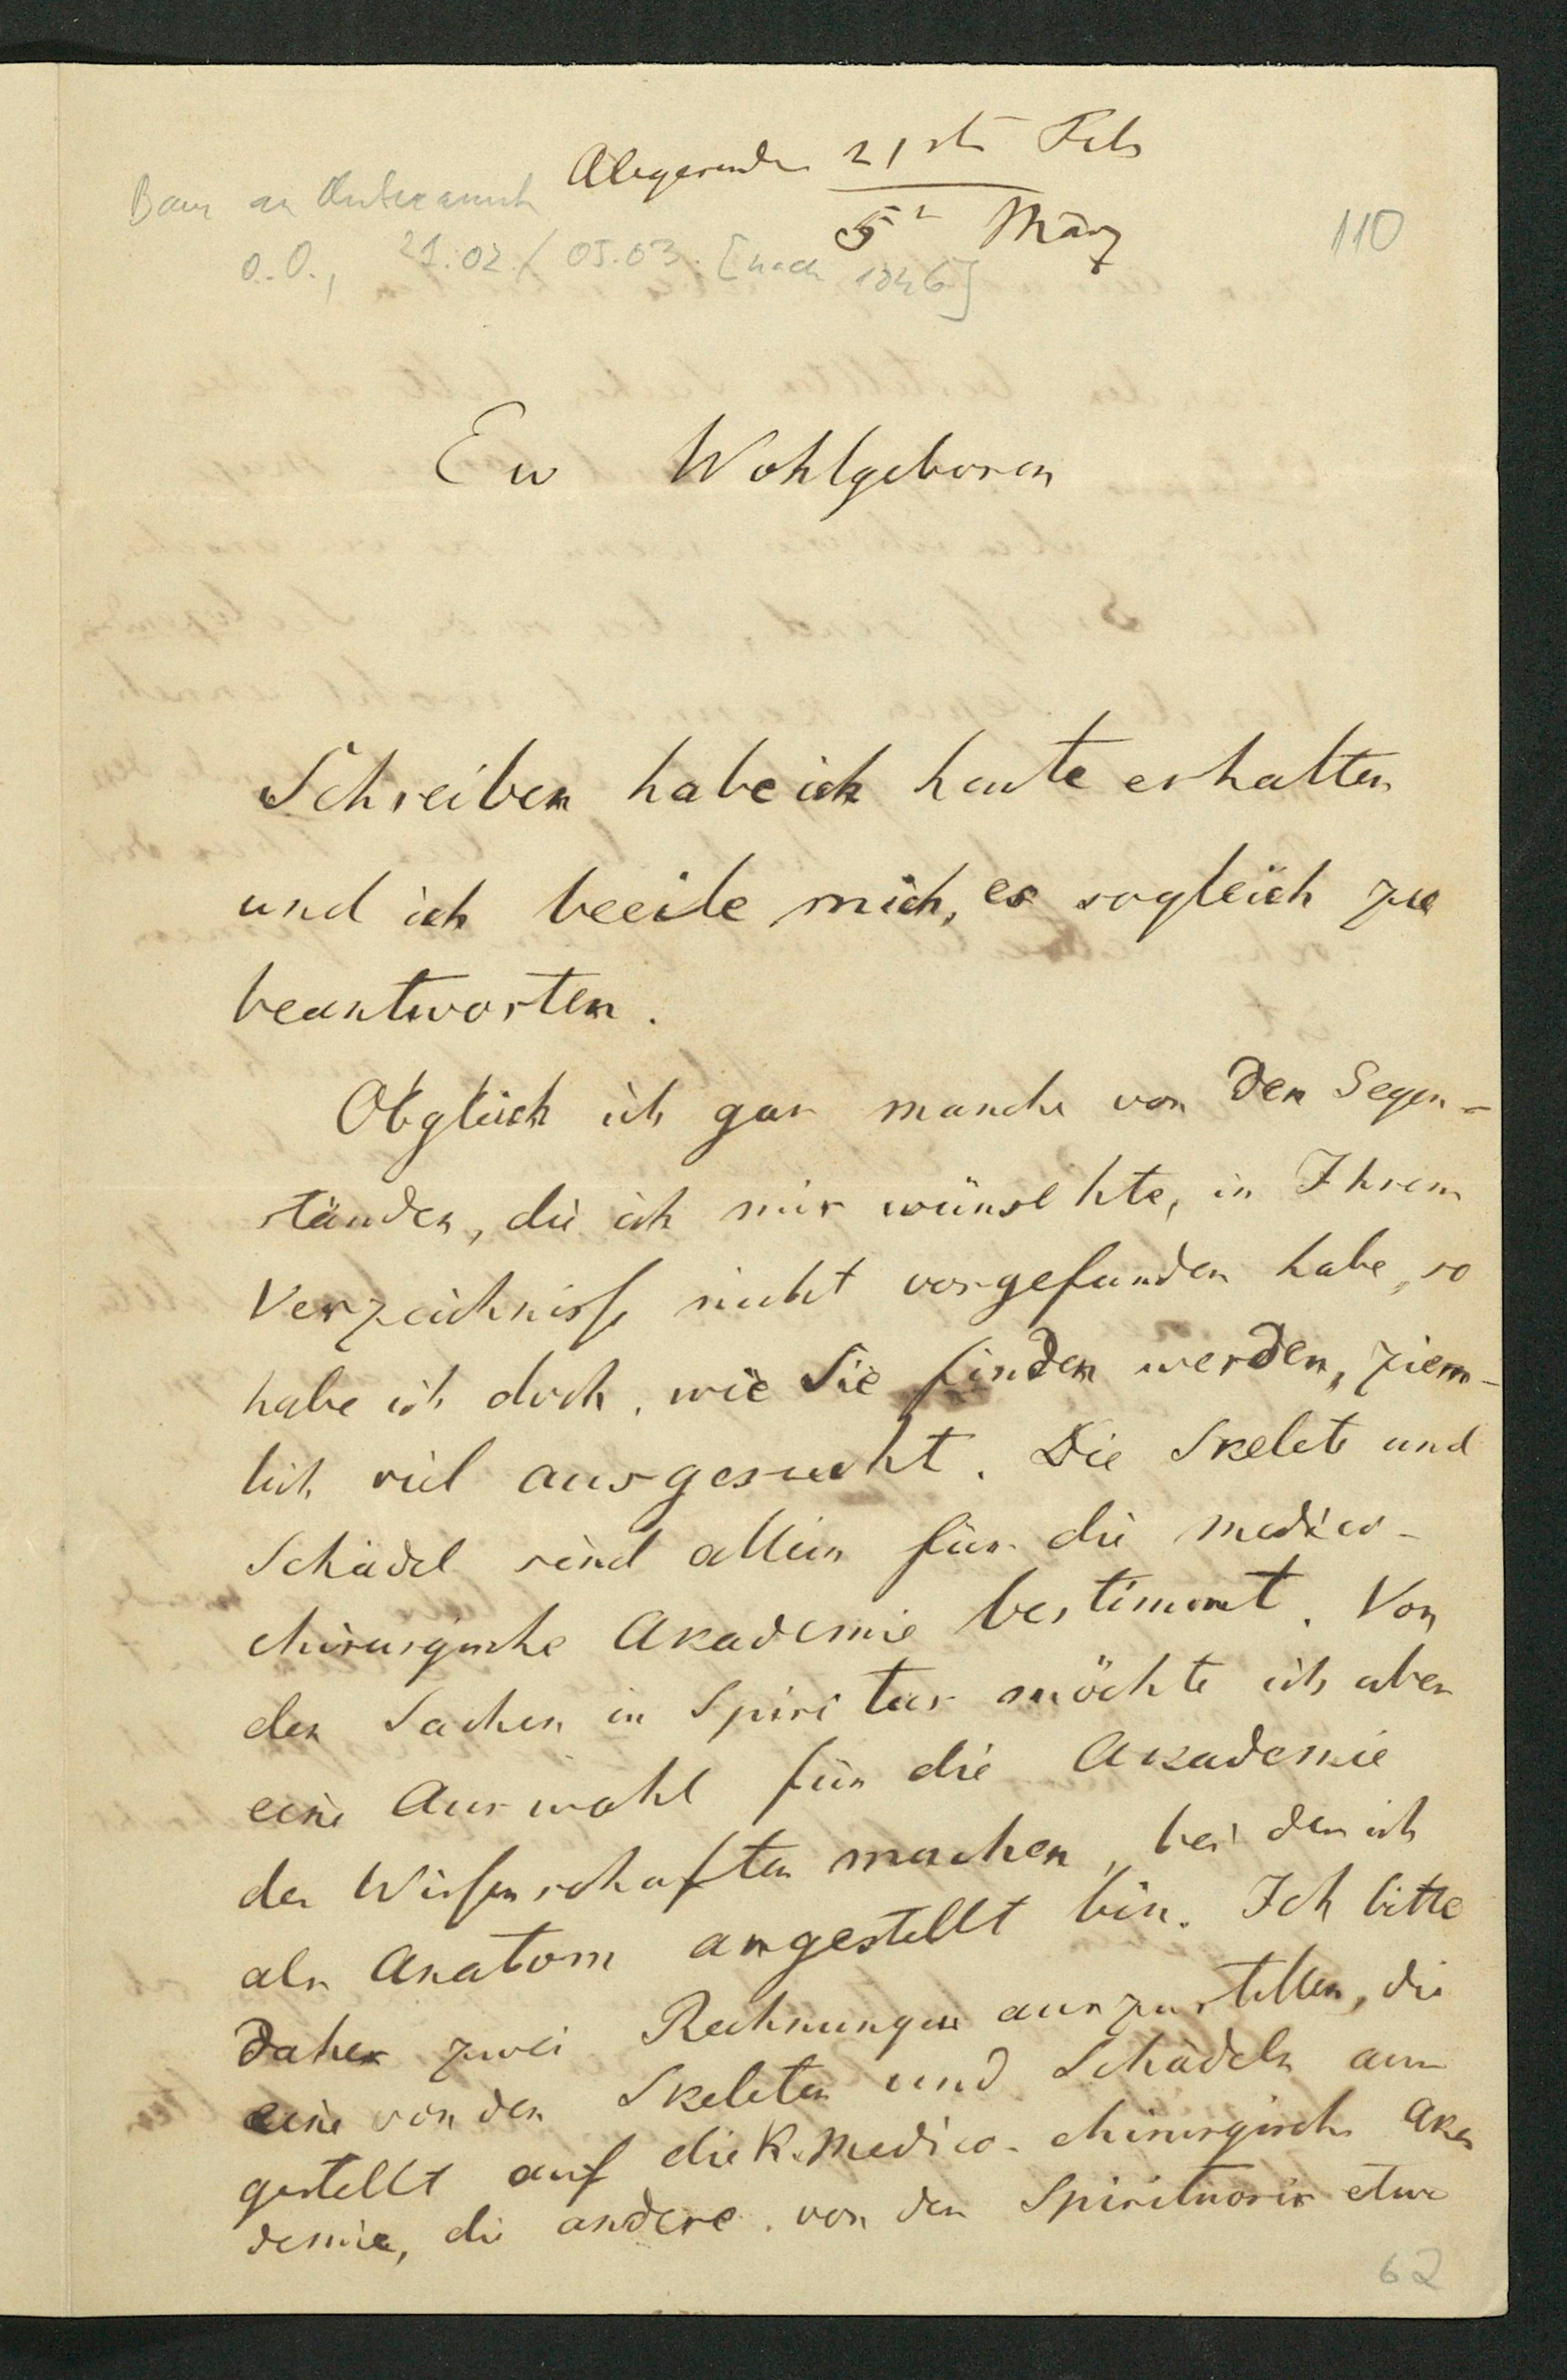 Abgesandt 21sten Feb
5n März
Baer an Unbekannt
o.O., 21.02./05.03. [nach 1846]
110
Ew Wohlgeboren
Schreiben habe ich heute erhalten
und ich beeile mich, es sogleich zu
beantworten.
Obgleich ich gar manche von den Gegen-
ständen, die ich mir wünschte, in Ihrem
Verzeichniss nicht vorgefunden habe, so
habe ich doch, wie Sie finden werden, ziem-
lich viel ausgesucht. Die Skelete und
Schädel sind allein für die medico-
chirurgische Akademie bestimmt. Von
den Sachen in Spiritus möchte ich aber
eine Auswahl für die Akademie
der Wissenschaften machen, bei der ich
als Anatom angestellt bin. Ich bitte
daher zwei Rechnungen auszustellen, die
eine von den Skeleten und Schädeln aus
gestellt auf die K. Medico-chirurgische Aka
demie, die andere von den Spirituosis etwa
62